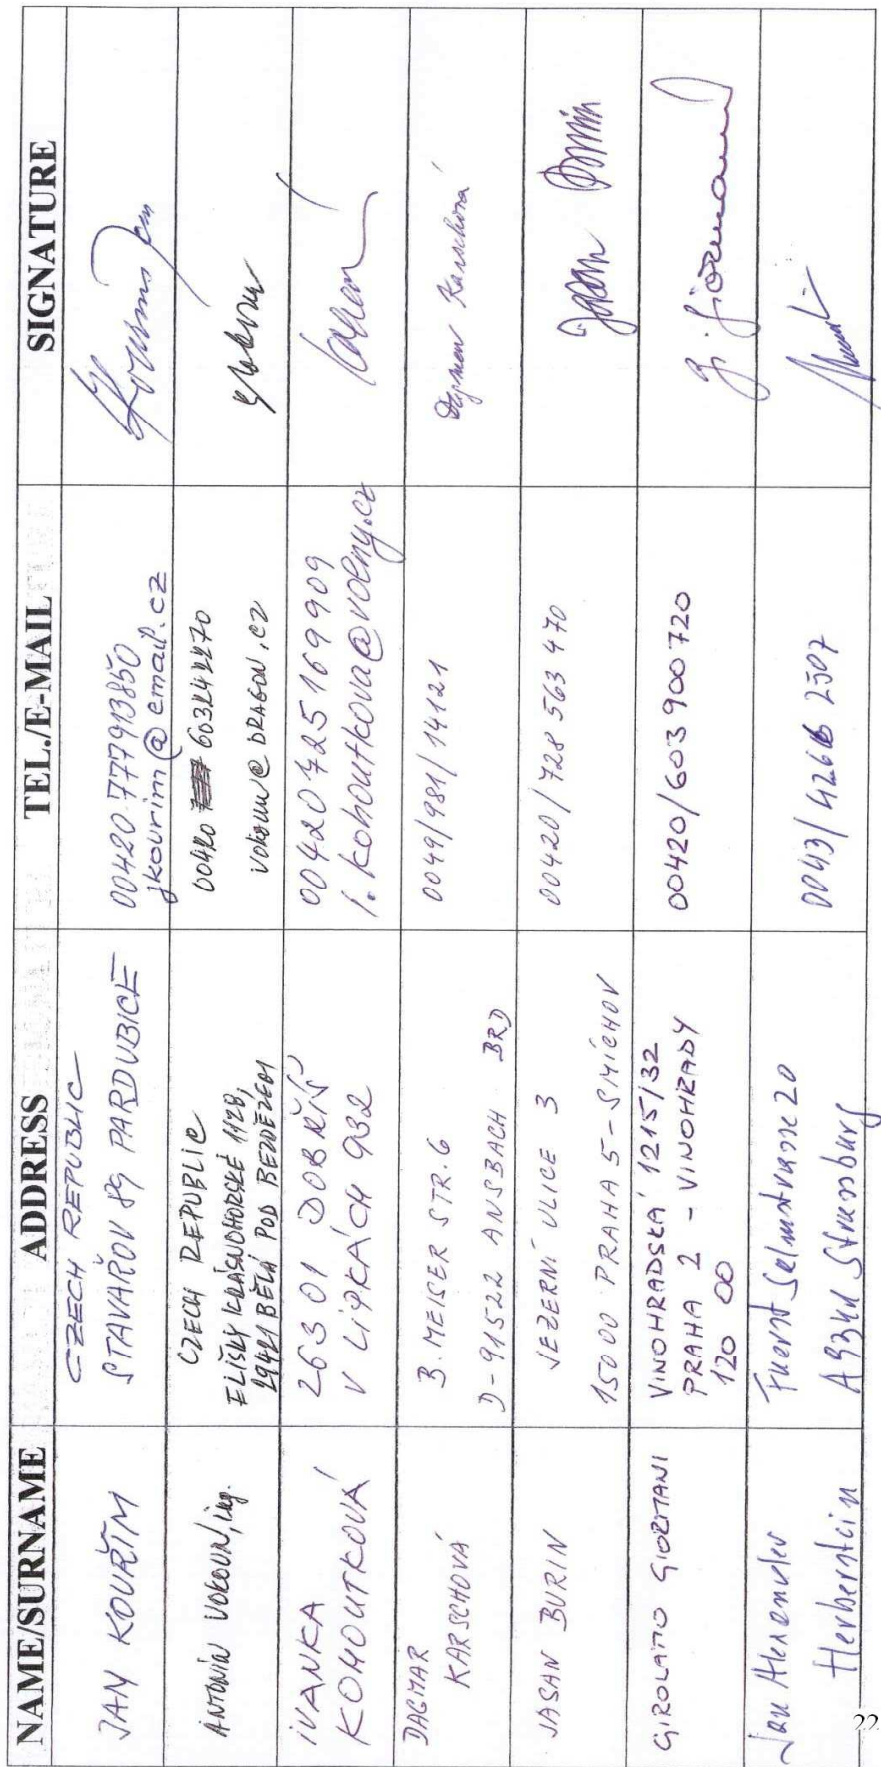 NAME/SURNAME ADDRESS TEL./E-MAIL SIGNATURE
JAN KOUŘIM
CZECH REPUBLIC
STAVAŘOV 89 PARDUBICE
00420 777913850
jkourim@email.cz
ANTONÍN VOKOUN, ing.
CZECH REPUBLIC
ELIŠKY KRÁSNOHORSKÉ 1128,
29421 BĚLÁ POD BEZDĚZEM
00420 603242270
vokoun@DRAGON.CZ
IVANKA
KOHOUTKOVÁ
26301 DOBŘÍŠ
V LIPKÁCH 932
00420 725169909
i.kohoutkova@volny.cz
DAGMAR
KARSCHOVÁ
B. MEISER STR. 6
D-91522 ANSBACH BRD
0049/981/14121
Dagmar Karschová
JASAN BURIN
JEZERNÍ ULICE 3
15000 PRAHA 5 - SMÍCHOV
00420/728 563 470
GIROLAMO GIORMANI
VINOHRADSKÁ 1215/32
PRAHA 2 - VINOHRADY
120 00
00420/603 900 720
G. Giormani
Jan Alexander
Herberstein
Fuerst Salmstrasse 20
A9341 Strassburg
0043/4266 2507
22